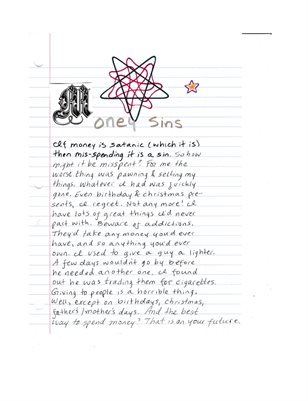 Money Sins
If money is satanic (which it is)
then mis-spending it is a sin. So how
might it be misspent? For me the
worse thing was pawning & selling my
things. Whatever I had was quickly
gone. Even birthday & christmas pre-
sents, I regret. Not any more! I
have lots of great things I'd never
part with. Beware of addictions.
They'd take any money you'd ever
have, and so anything you'd ever
own. I used to give a guy a lighter.
A few days wouldn't go by before
he needed another one. I found
out he was trading them for cigarettes.
Giving to people is a horrible thing.
Well, except on birthdays, christmas,
fathers/mother's days. And the best
way to spend money? That is on your future.